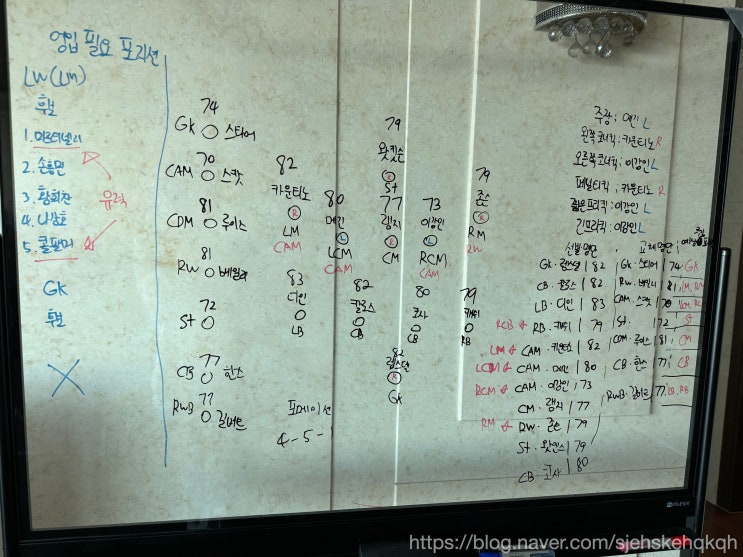 영입 필요 포지션
LW(LM)
후보
1. 마르티넬리
2. 손흥민
3. 황희찬
4. 나상호
5. 콜팔머
유력
GK
후보
X
74
GK 스티어
70
CAM 스캇
81
CDM 루이스
81
RW 베일리
72
ST
77
CB 한스
77
RWB 길버트
79
왓킨스
R
ST
82
카운티노
R
LM
CAM
80
메긴
L
LCM
CAM
77
램지
R
CM
73
이강인
L
RCM
CAM
79
존슨
R
RM
RW
83
디인
LB
82
칼로스
CB
80
코사
CB
79
캐쉬
RB
82
R
GK
포메이션
4-5-1
주장 : 메긴 L
왼쪽코너킥 : 카운티노 R
오른쪽코너킥 : 이강인 L
페널티킥 : 카운티노 R
짧은프리킥 : 이강인 L
긴프리킥 : 이강인 L
선발명단
교체명단
GK · 82
CB · 칼로스 82
LB · 디인 83
RCB RB · 캐쉬 79
LM CAM · 카운티노 82
LCM CAM · 메긴 80
RCM CAM · 이강인 73
CM · 램지 77
RM RW · 존슨 79
ST · 왓킨스 79
CB · 코사 80
GK · 스티어 74 GK
RW · 베일리 81 LM, RM
CAM · 스캇 70 LCM, RCM
ST · 72 ST
CDM · 루이스 81 CM
CB · 한스 77 CB
RWB · 길버트 77 LB, RB
https://blog.naver.com/sjehskehqkqh